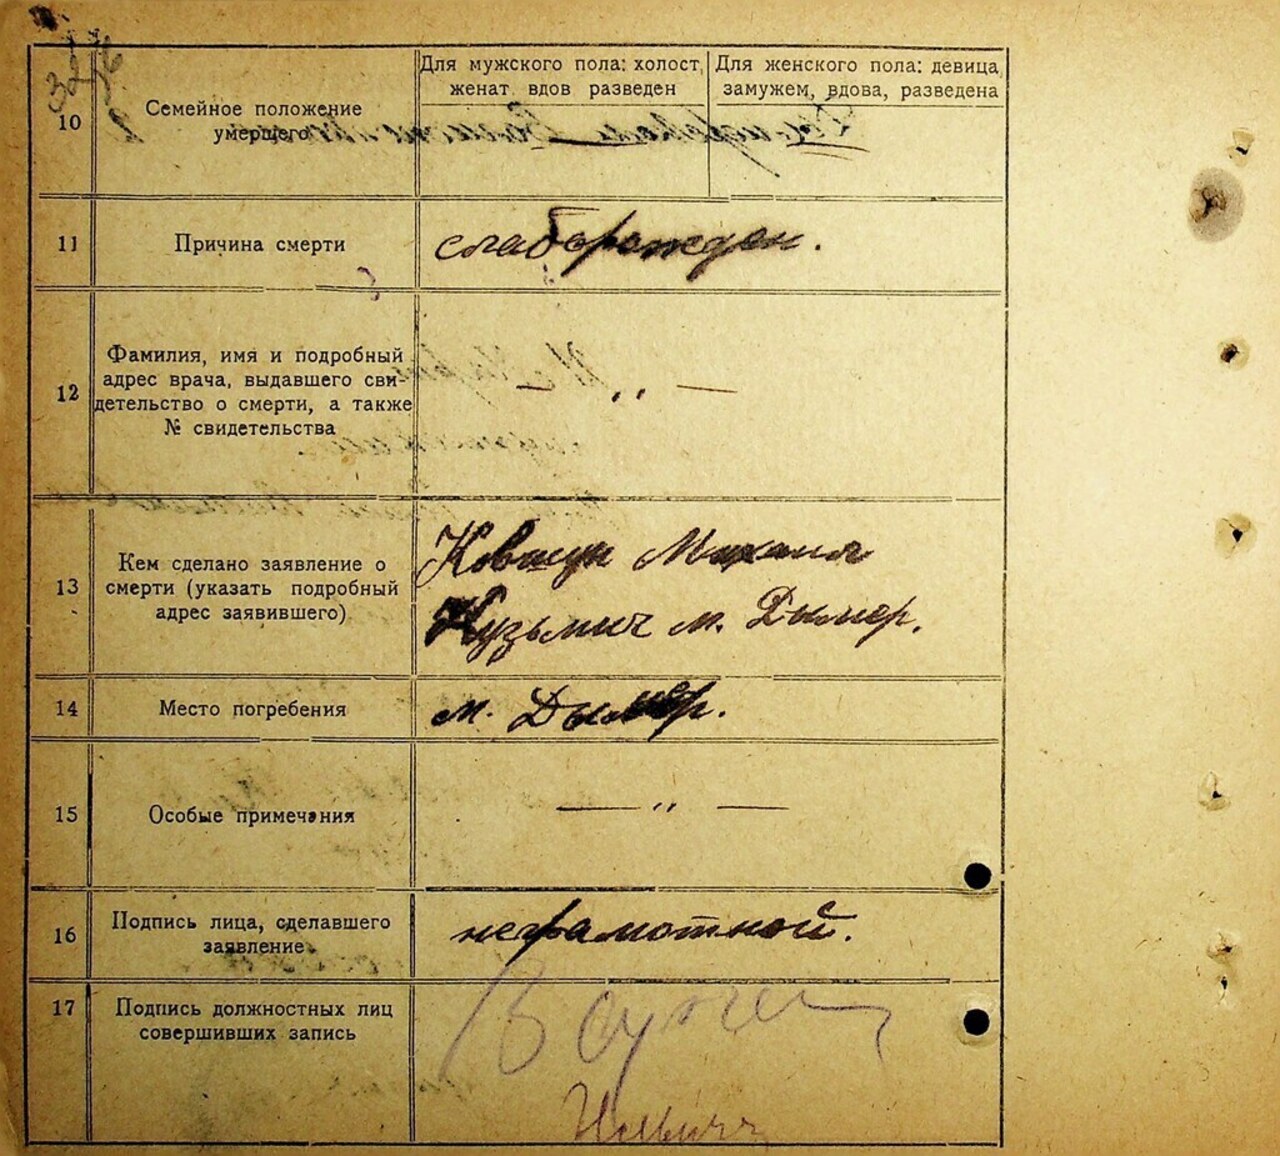 10
Семейное положение
умершего
Для мужского пола: холост,
женат вдов разведен
Для женского пола: девица,
замужем, вдова, разведена
11
Причина смерти
слаборожден.
12
Фамилия, имя и подробный
адрес врача, выдавшего сви-
детельство о смерти, а также
№ свидетельства
— „ —
13
Кем сделано заявление о
смерти (указать подробный
адрес заявившего)
Ковтун Михаил
Кузьмич м. Дымер.
14
Место погребения
м. Дымер.
15
Особые примечания
— „ —
16
Подпись лица, сделавшего
заявление
неграмотной.
17
Подпись должностных лиц
совершивших запись